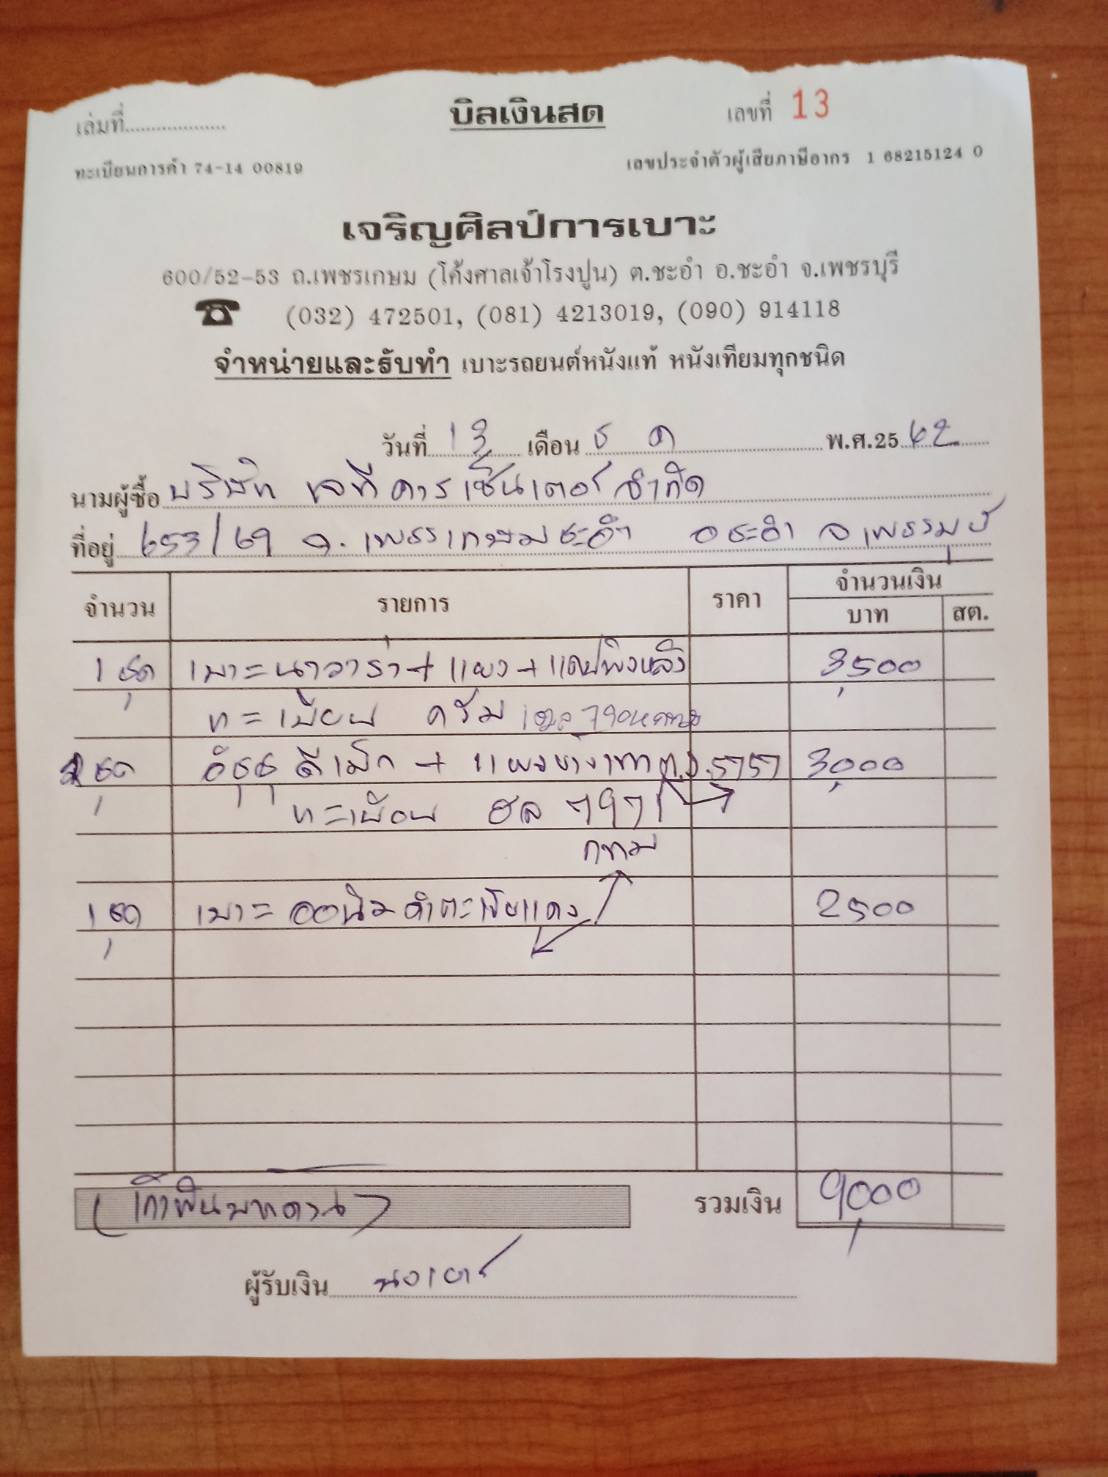 เล่มที่.................... บิลเงินสด เลขที่ 13
ทะเบียนการค้า 74-14 00819 เลขประจำตัวผู้เสียภาษีอากร 1 68215124 0
เจริญศิลป์การเบาะ
600/52-53 ถ.เพชรเกษม (โค้งศาลเจ้าโรงปูน) ต.ชะอำ อ.ชะอำ จ.เพชรบุรี
☎ (032) 472501, (081) 4213019, (090) 914118
จำหน่ายและรับทำ เบาะรถยนต์หนังแท้ หนังเทียมทุกชนิด
วันที่ 13 เดือน ธ ค พ.ศ.25 62
นามผู้ซื้อ บริษัท เจที คาร เซ็นเตอร์ จำกัด
ที่อยู่ 653/69 ถ. เพชรเกษม ชะอำ อ ชะอำ จ เพชรบุรี
จำนวน รายการ ราคา จำนวนเงิน
บาท สต.
1 ชุด เบาะนาวาร่า + แผง + แคปพิงหลัง 3,500
ทะเบียน ครีม
ชุด อีซูซุ ดีแม็ก + 3,000
ทะเบียน ฮล
กทม
1 ชุด เบาะ 2500
(เก้าพันบาทถ้วน) รวมเงิน 9,000
ผู้รับเงิน